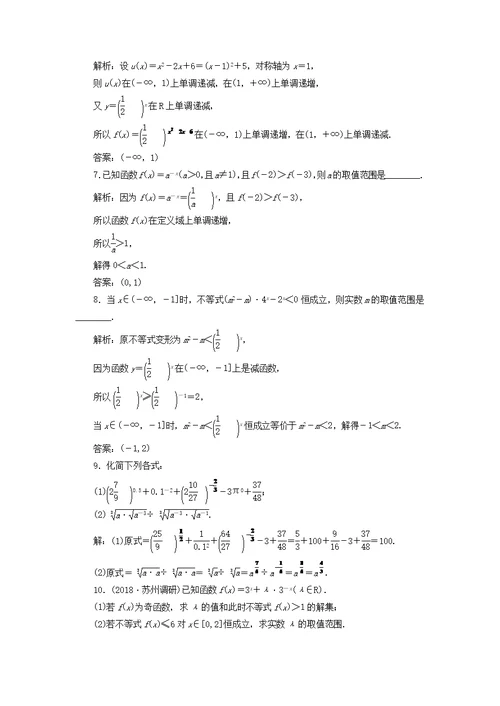 解析：设u(x)＝x²－2x＋6＝(x－1)²＋5，对称轴为x＝1，
则u(x)在(－∞，1)上单调递减，在(1，＋∞)上单调递增，
又y＝(1/2)ˣ在R上单调递减，
所以f(x)＝(1/2)^(x² 2x 6)在(－∞，1)上单调递增，在(1，＋∞)上单调递减．
答案：(－∞，1)
7.已知函数f(x)＝a⁻ˣ(a＞0，且a≠1)，且f(－2)＞f(－3)，则a的取值范围是________．
解析：因为f(x)＝a⁻ˣ＝(1/a)ˣ，且f(－2)＞f(－3)，
所以函数f(x)在定义域上单调递增，
所以1/a＞1，
解得0＜a＜1.
答案：(0,1)
8．当x∈(－∞，－1]时，不等式(m²－m)·4ˣ－2ˣ＜0恒成立，则实数m的取值范围是
________．
解析：原不等式变形为m²－m＜(1/2)ˣ，
因为函数y＝(1/2)ˣ在(－∞，－1]上是减函数，
所以(1/2)ˣ≥(1/2)⁻¹＝2，
当x∈(－∞，－1]时，m²－m＜(1/2)ˣ恒成立等价于m²－m＜2，解得－1＜m＜2.
答案：(－1,2)
9．化简下列各式：
(1)(2 7/9)^0.5＋0.1⁻²＋(2 10/27)^(－2/3)－3π⁰＋37/48；
解：(1)原式＝(25/9)^(1/2)＋1/0.1²＋(64/27)^(－2/3)－3＋37/48＝5/3＋100＋9/16－3＋37/48＝100.
10．(2018·苏州调研)已知函数f(x)＝3ˣ＋λ·3⁻ˣ(λ∈R)．
(1)若f(x)为奇函数，求λ的值和此时不等式f(x)＞1的解集；
(2)若不等式f(x)≤6对x∈[0,2]恒成立，求实数λ的取值范围．